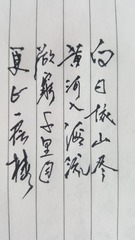 白日依山尽
黄河入海流
欲窮千里目
更上一层楼